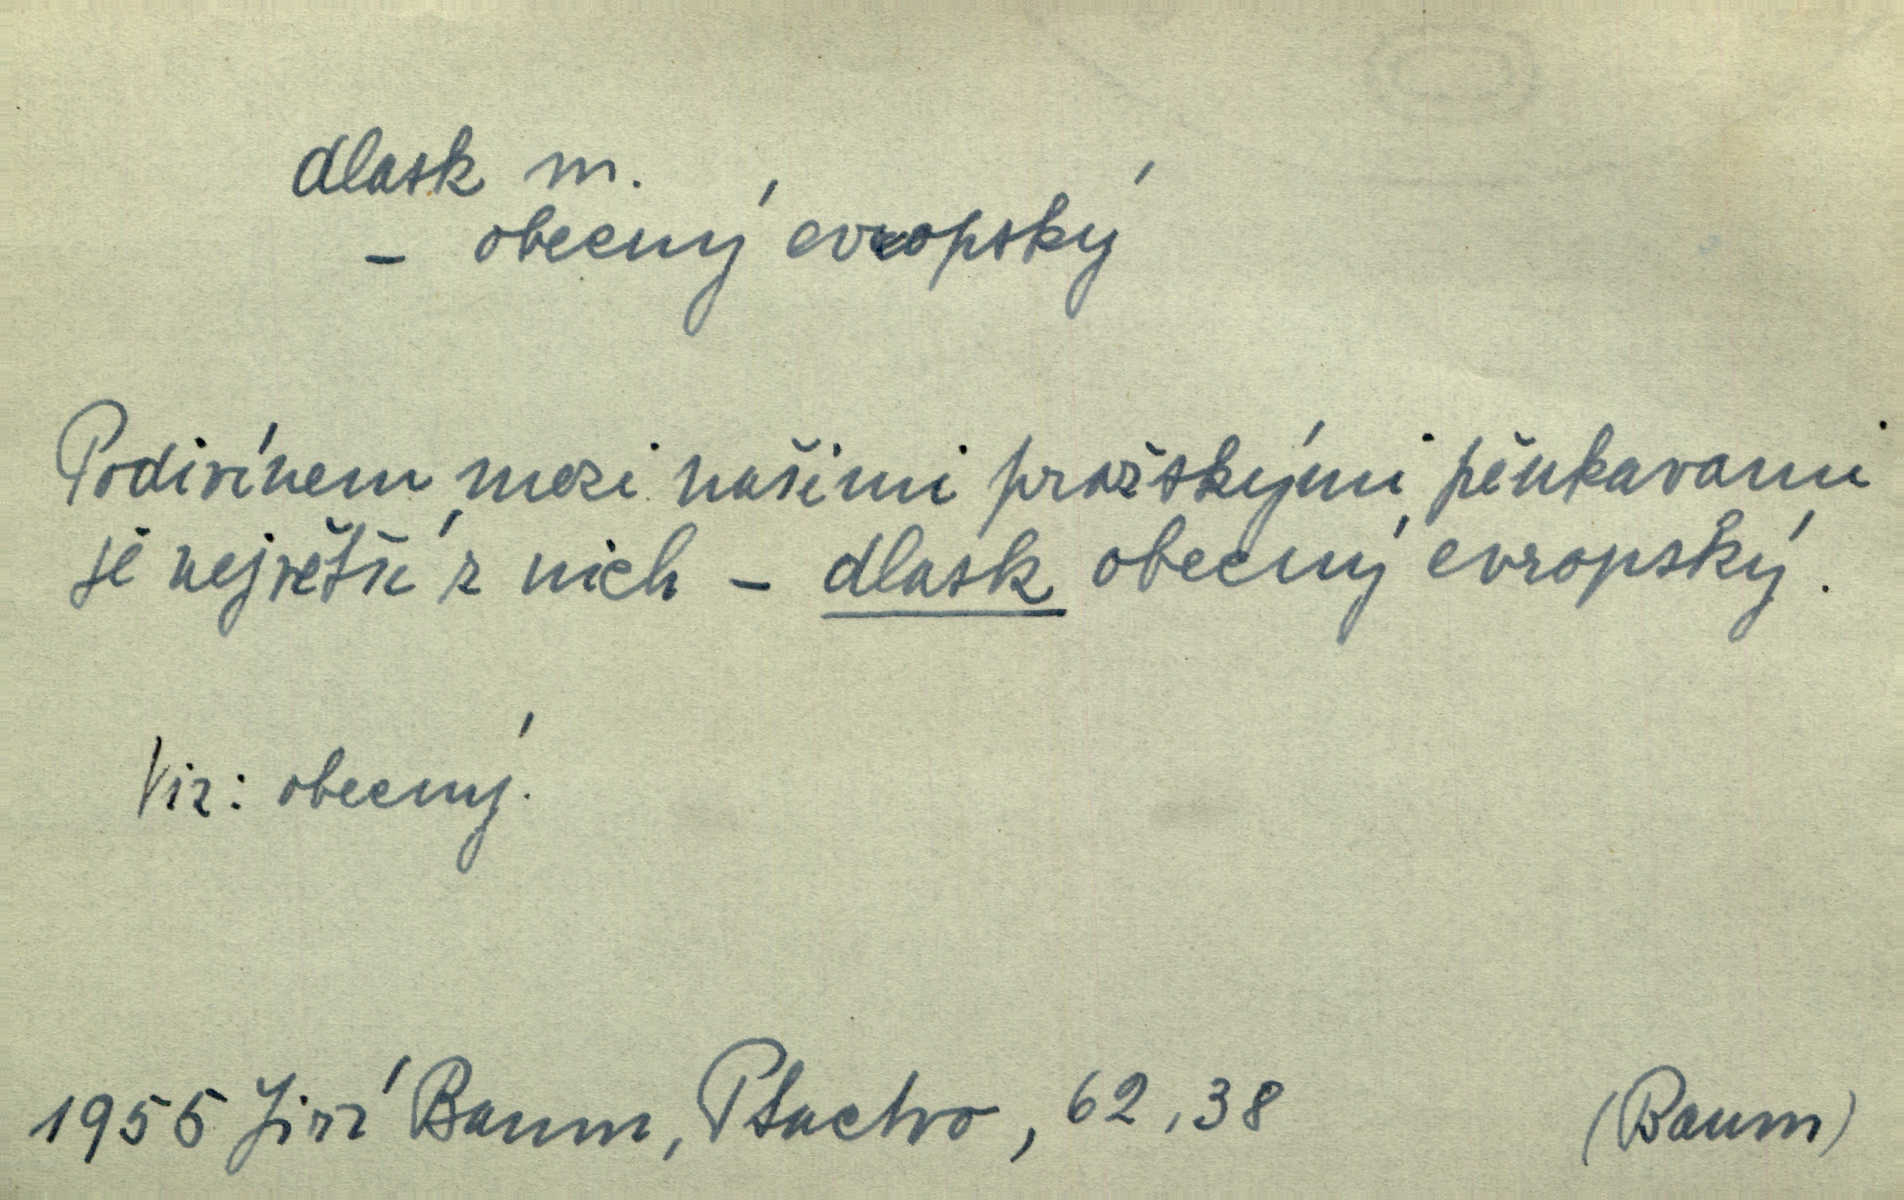 dlask m.
– obecný evropský
Podivínem mezi našimi pražskými pěnkavami
je největší z nich – dlask obecný evropský.
Viz: obecný.
1955 Jiří Baum, Ptactvo, 62,38 (Baum)